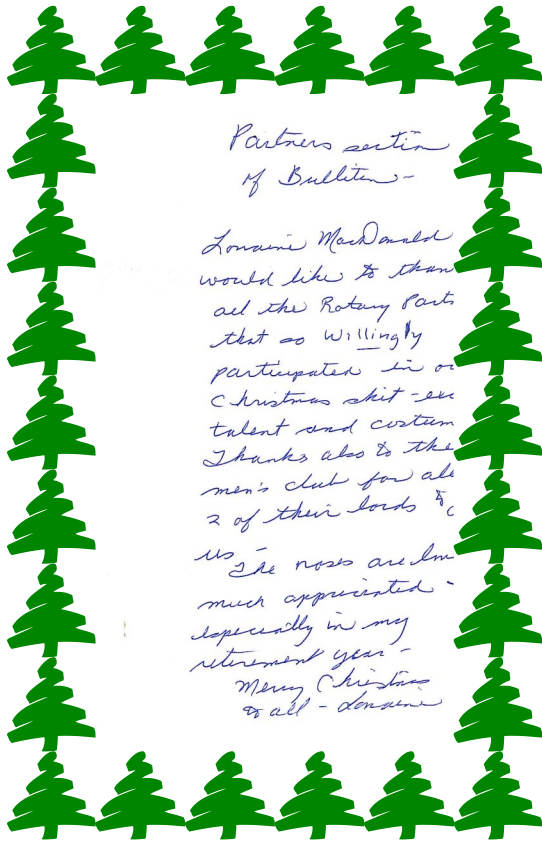 Partners section
of Bulliten -
Lorraine MacDonald
would like to than
all the Rotary Parts
that so willingly
participated in ou
Christmas skit - exc
talent and costum
Thanks also to the
men's club for
2 of their lords to
us -
The roses are
much appreciated -
especially in my
retirement year -
Merry Christmas
to all - Lorraine